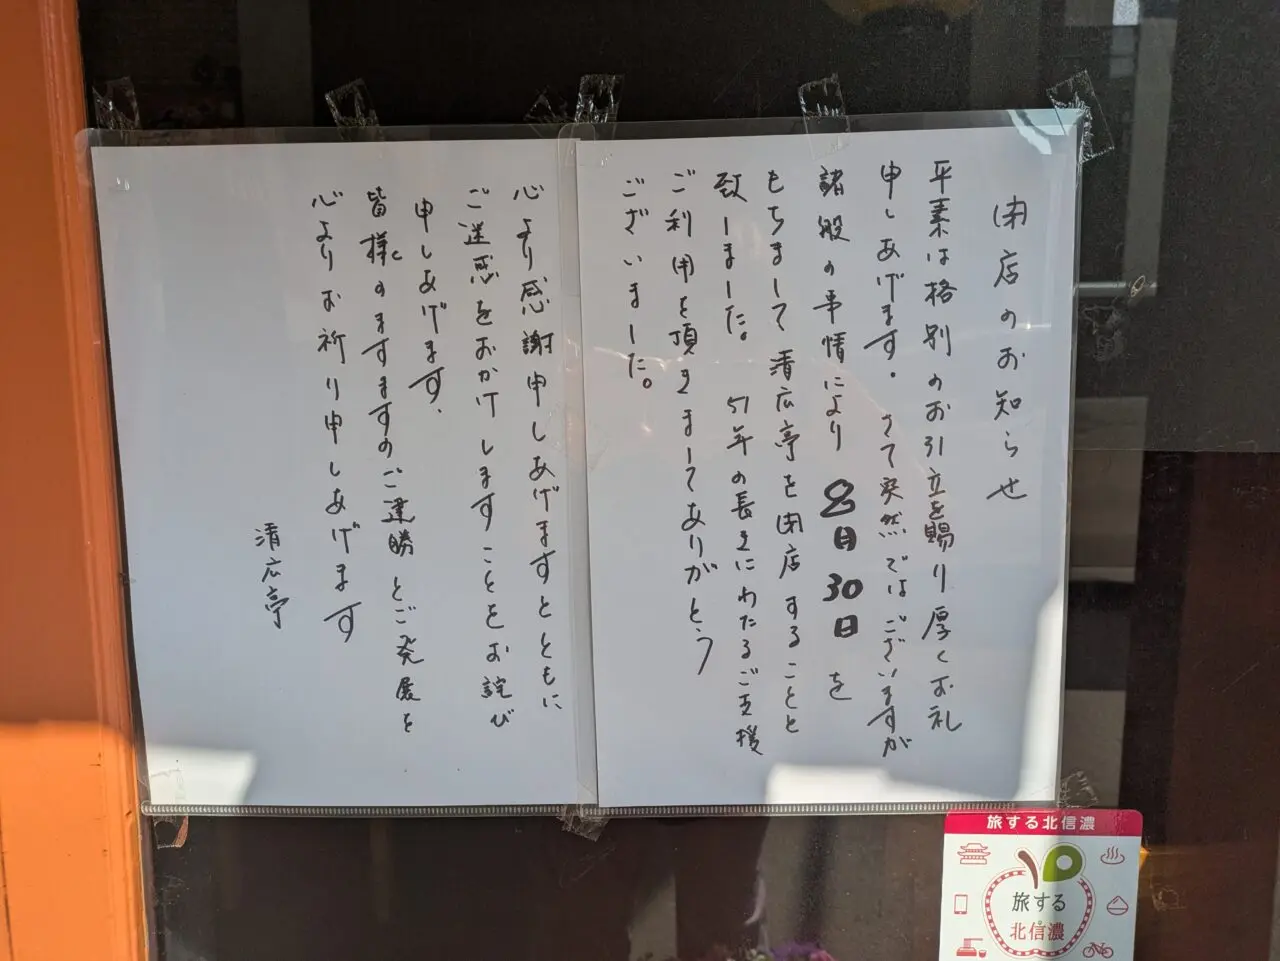 閉店のお知らせ
平素は格別のお引立を賜り厚くお礼
申しあげます。さて突然ではございますが
諸般の事情により 8月30日を
もちまして 清広亭を閉店することと
致しました。51年の長きにわたるご支援
ご利用を頂きましてありがとう
ございました。
心より感謝申しあげますとともに
ご迷惑をおかけしますことをお詫び
申しあげます、
皆様のますますのご達勝とご発展を
心よりお祈り申しあげます
清広亭
旅する北信濃
旅する
北信濃